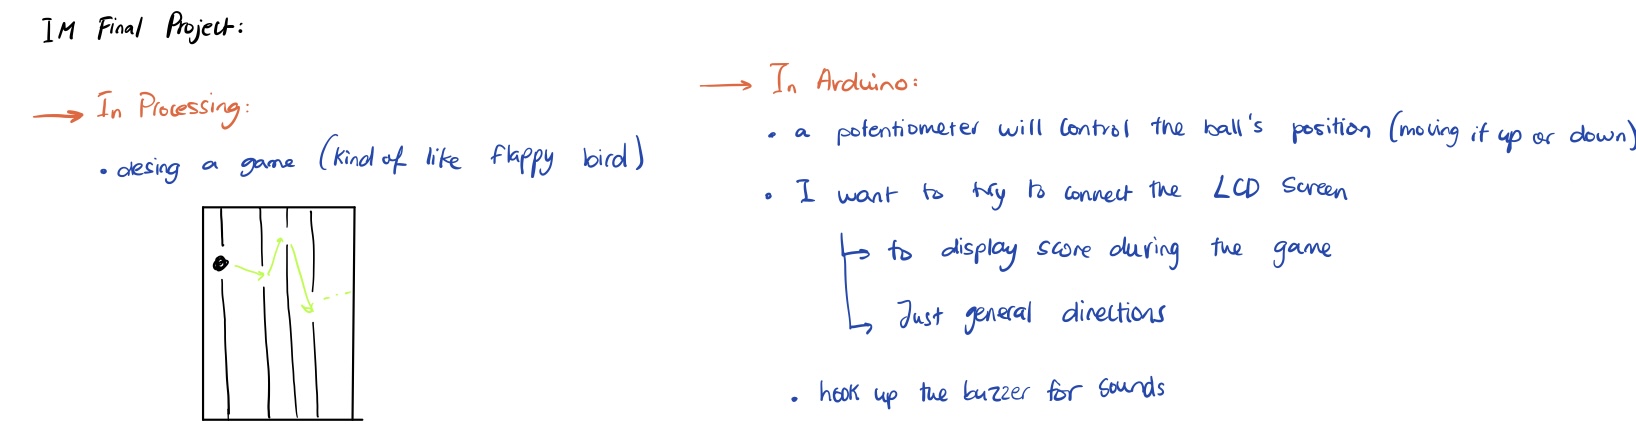 IM Final Project:
→ In Processing:
• desing a game (kind of like flappy bird)
→ In Arduino:
• a potentiometer will control the ball's position (moving it up or down)
• I want to try to connect the LCD screen
↳ to display score during the game
↳ Just general directions
• hook up the buzzer for sounds